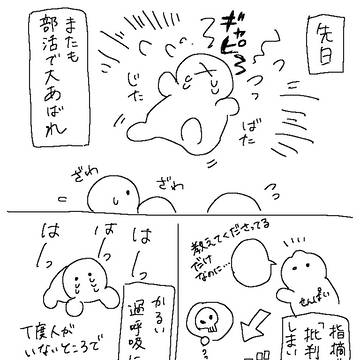 先日
ギャピー
じた
ばた
またも
部活で大あばれ
ざわ
ざわ
教えてくださってる
だけ
なのに…
せんぱい
指摘
「批判
しま
はーっ
はーっ
はーっ
かるい
過呼吸に
丁度人が
いないところで